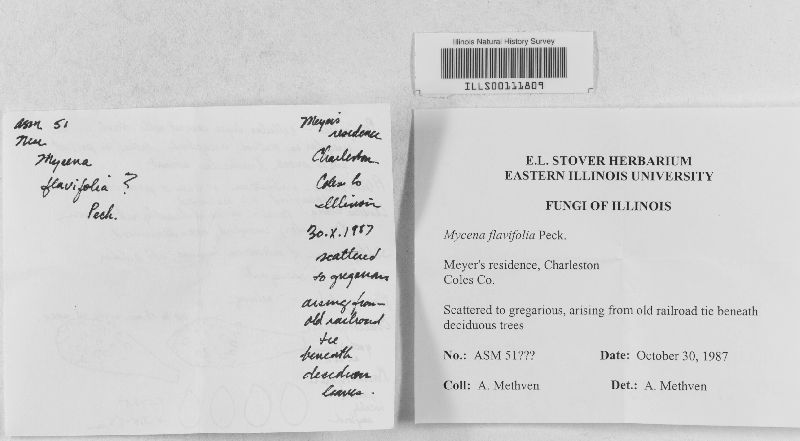 Illinois Natural History Survey
ILLS00111809
ASM 51
Mycena
flavifolia ?
Peck.
Meyer's
residence
Charleston
Coles Co
Illinois
30.X.1987
scattered
to gregarious
arising from
old railroad
tie
beneath
deciduous
leaves.
E.L. STOVER HERBARIUM
EASTERN ILLINOIS UNIVERSITY
FUNGI OF ILLINOIS
Mycena flavifolia Peck.
Meyer's residence, Charleston
Coles Co.
Scattered to gregarious, arising from old railroad tie beneath
deciduous trees
No.: ASM 51??? Date: October 30, 1987
Coll: A. Methven Det.: A. Methven